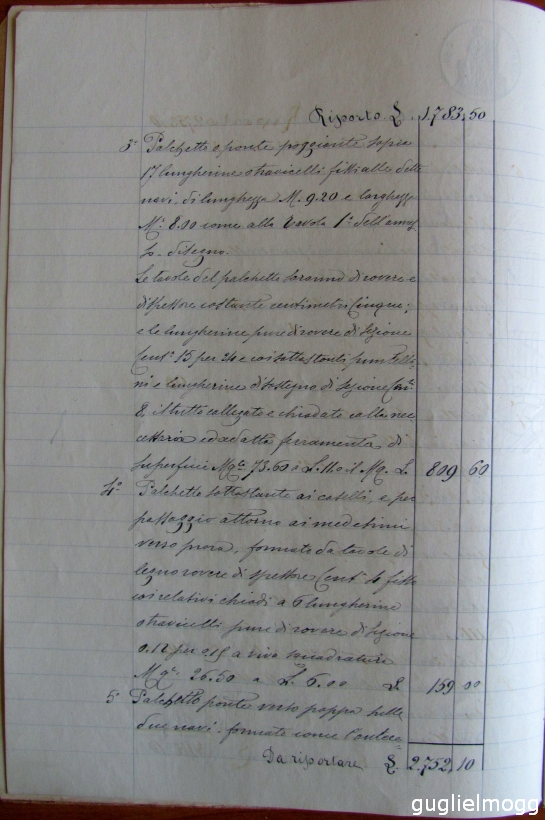 Riporto £. 1.783.50
3° Palchetto o ponte poggiante sopra
17 lungherine o travicelli fitti alle dette
navi, di lunghezza M. 9.20 e larghezza
M. 8.00 come alla tavola 1ª dell'annes
so disegno.
Le tavole del palchetto saranno di rovere e
di spessore costante centimetri Cinque;
e le lungherine pure di rovere di sezione
Cent. 15 per e coi sottostanti
ni e lungherine di sostegno di sezione Cm.
8 il tutto collegato e chiodato colla nec
cessaria ed adatta ferramenta, di
superficie Mq. 73.60 a L. 11.00 il Mq. L. 809 60
4° Palchetto sottostante ai caselli, e per
passaggio attorno ai medesimi
verso prora, formato da tavole di
legno rovere di spessore Cent. 4 fisse
coi relativi chiodi a 6 lungherine
o travicelli pure di rovere di sezione
0.12 per 0.15 a viva squadratura
Mq. 26.50 a L. 6.00 L. 159 00
5° Palchetto ponte verso poppa sulle
due navi, formato come l'antece-
Da riportare £. 2.752.10
guglielmogg